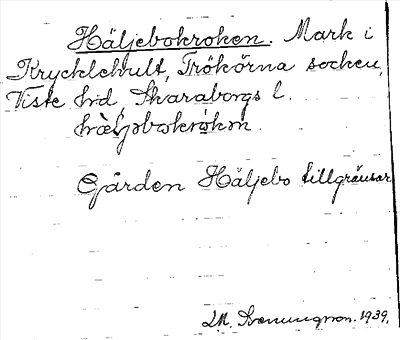 Häljebokroken. Mark i
Krycklehult, Trökörna socken,
Viste hd, Skaraborgs l.
hæljebokrokən.
Gården Häljebo tillgränsar
M. Benningsson. 1939.